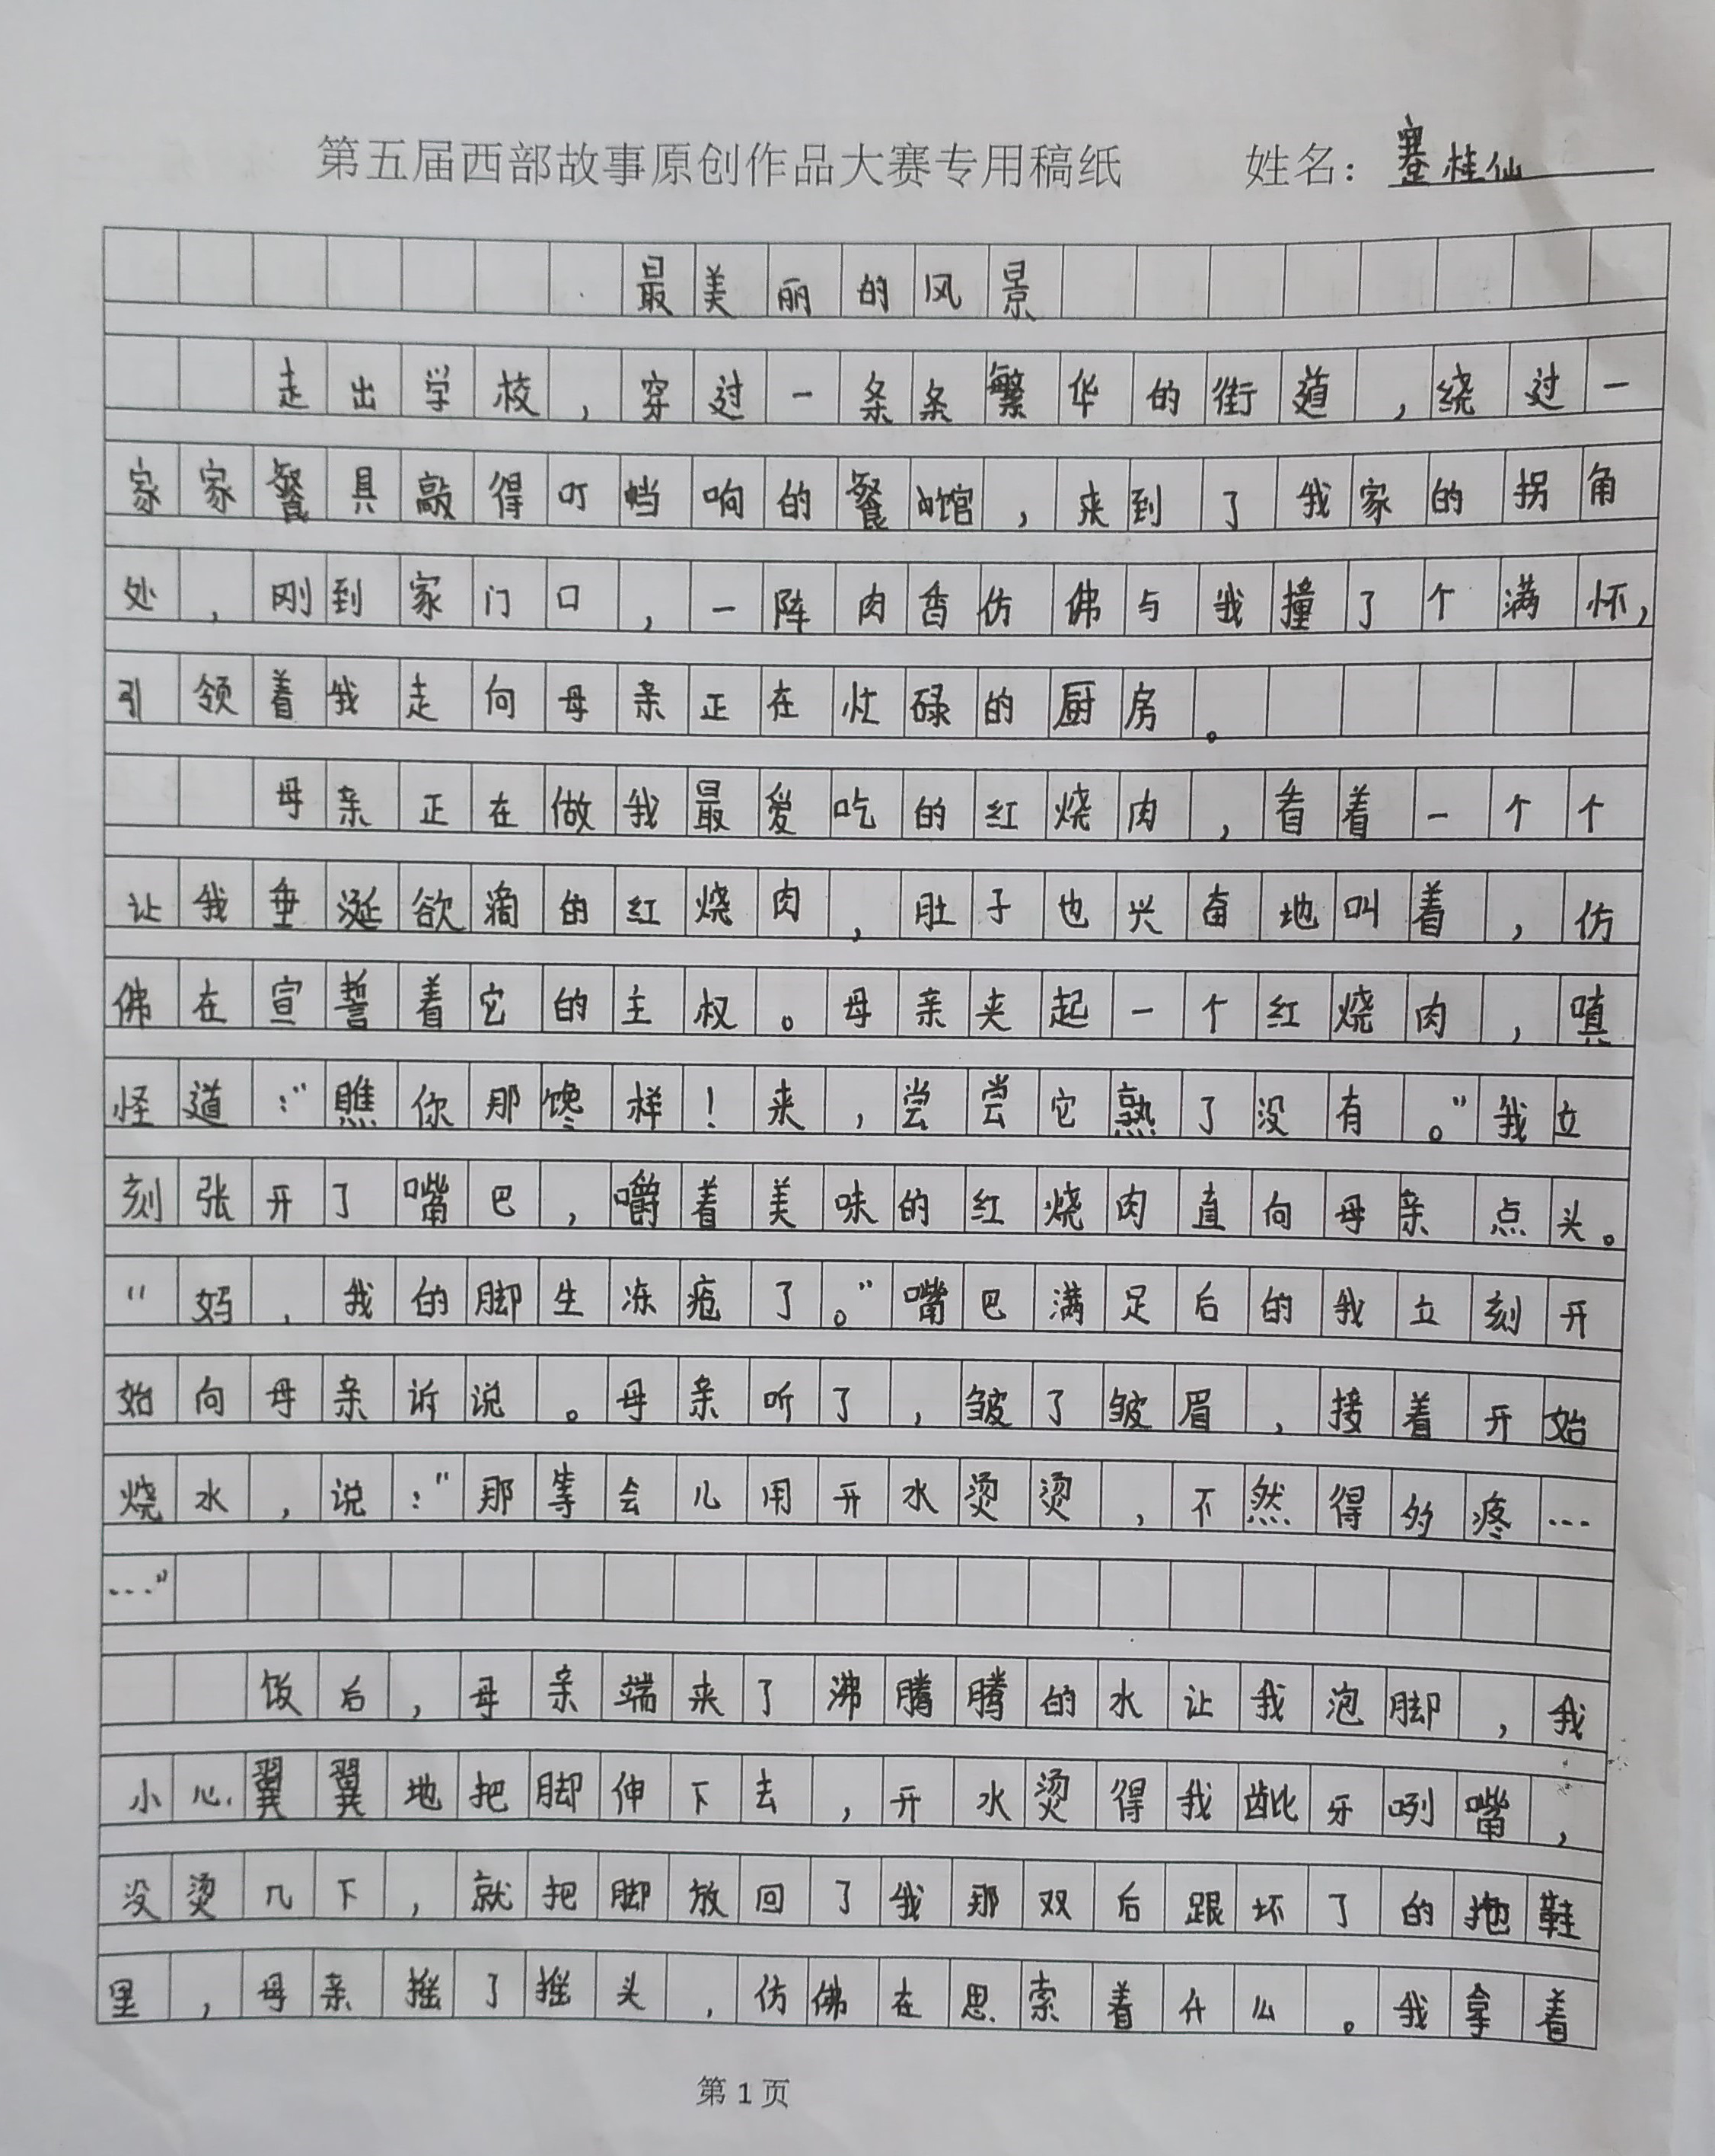 第五届西部故事原创作品大赛专用稿纸 姓名：蹇桂仙
最美丽的风景
走出学校，穿过一条条繁华的街道，绕过一
家家餐具敲得叮当响的餐馆，来到了我家的拐角
处，刚到家门口，一阵肉香仿佛与我撞了个满怀，
引领着我走向母亲正在忙碌的厨房。
母亲正在做我最爱吃的红烧肉，看着一个个
让我垂涎欲滴的红烧肉，肚子也兴奋地叫着，仿
佛在宣誓着它的主权。母亲夹起一个红烧肉，嗔
怪道：“瞧你那馋样！来，尝尝它熟了没有。”我立
刻张开了嘴巴，嚼着美味的红烧肉直向母亲点头。
“妈，我的脚生冻疮了。”嘴巴满足后的我立刻开
始向母亲诉说。母亲听了，皱了皱眉，接着开始
烧水，说：“那等会儿用开水烫烫，不然得多疼…
…”
饭后，母亲端来了沸腾腾的水让我泡脚，我
小心翼翼地把脚伸下去，开水烫得我龇牙咧嘴，
没烫几下，就把脚放回了我那双后跟坏了的拖鞋
里，母亲摇了摇头，仿佛在思索着什么。我拿着
第1页